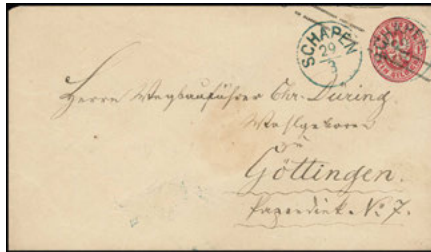 SCHAPEN
29
3
SCHAPEN
Herrn Wegbauführer Chr. Düring.
Wohlgeboren
zu
Göttingen.
No 7.